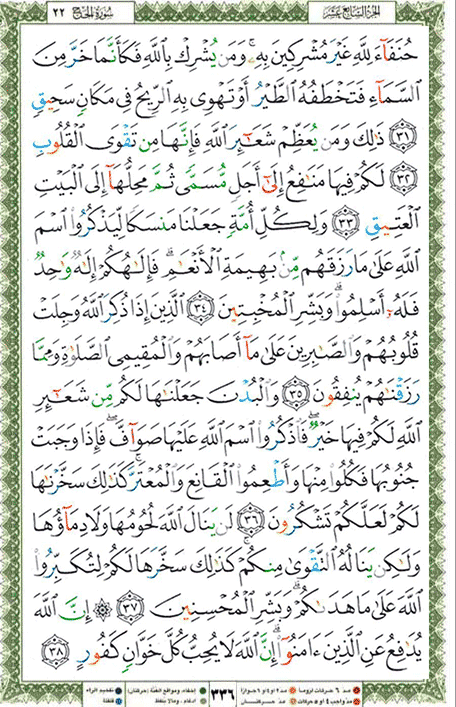 الجزء السابع عشر سورة الحج ٢٢
حُنَفَآءَ لِلَّهِ غَيْرَ مُشْرِكِينَ بِهِۦۚ وَمَن يُشْرِكْ بِٱللَّهِ فَكَأَنَّمَا خَرَّ مِنَ
ٱلسَّمَآءِ فَتَخْطَفُهُ ٱلطَّيْرُ أَوْ تَهْوِى بِهِ ٱلرِّيحُ فِى مَكَانٍ سَحِيقٍ
﴿٣١﴾ ذَٰلِكَ وَمَن يُعَظِّمْ شَعَٰٓئِرَ ٱللَّهِ فَإِنَّهَا مِن تَقْوَى ٱلْقُلُوبِ
﴿٣٢﴾ لَكُمْ فِيهَا مَنَٰفِعُ إِلَىٰٓ أَجَلٍ مُّسَمًّى ثُمَّ مَحِلُّهَآ إِلَى ٱلْبَيْتِ
ٱلْعَتِيقِ ﴿٣٣﴾ وَلِكُلِّ أُمَّةٍ جَعَلْنَا مَنسَكًا لِّيَذْكُرُوا۟ ٱسْمَ
ٱللَّهِ عَلَىٰ مَا رَزَقَهُم مِّنۢ بَهِيمَةِ ٱلْأَنْعَٰمِۗ فَإِلَٰهُكُمْ إِلَٰهٌ وَٰحِدٌ
فَلَهُۥٓ أَسْلِمُوا۟ۗ وَبَشِّرِ ٱلْمُخْبِتِينَ ﴿٣٤﴾ ٱلَّذِينَ إِذَا ذُكِرَ ٱللَّهُ وَجِلَتْ
قُلُوبُهُمْ وَٱلصَّٰبِرِينَ عَلَىٰ مَآ أَصَابَهُمْ وَٱلْمُقِيمِى ٱلصَّلَوٰةِ وَمِمَّا
رَزَقْنَٰهُمْ يُنفِقُونَ ﴿٣٥﴾ وَٱلْبُدْنَ جَعَلْنَٰهَا لَكُم مِّن شَعَٰٓئِرِ
ٱللَّهِ لَكُمْ فِيهَا خَيْرٌۖ فَٱذْكُرُوا۟ ٱسْمَ ٱللَّهِ عَلَيْهَا صَوَآفَّۖ فَإِذَا وَجَبَتْ
جُنُوبُهَا فَكُلُوا۟ مِنْهَا وَأَطْعِمُوا۟ ٱلْقَانِعَ وَٱلْمُعْتَرَّۚ كَذَٰلِكَ سَخَّرْنَٰهَا
لَكُمْ لَعَلَّكُمْ تَشْكُرُونَ ﴿٣٦﴾ لَن يَنَالَ ٱللَّهَ لُحُومُهَا وَلَا دِمَآؤُهَا
وَلَٰكِن يَنَالُهُ ٱلتَّقْوَىٰ مِنكُمْۚ كَذَٰلِكَ سَخَّرَهَا لَكُمْ لِتُكَبِّرُوا۟
ٱللَّهَ عَلَىٰ مَا هَدَىٰكُمْۗ وَبَشِّرِ ٱلْمُحْسِنِينَ ﴿٣٧﴾ ۞ إِنَّ ٱللَّهَ
يُدَٰفِعُ عَنِ ٱلَّذِينَ ءَامَنُوٓا۟ۗ إِنَّ ٱللَّهَ لَا يُحِبُّ كُلَّ خَوَّانٍ كَفُورٍ ﴿٣٨﴾
٣٣٦